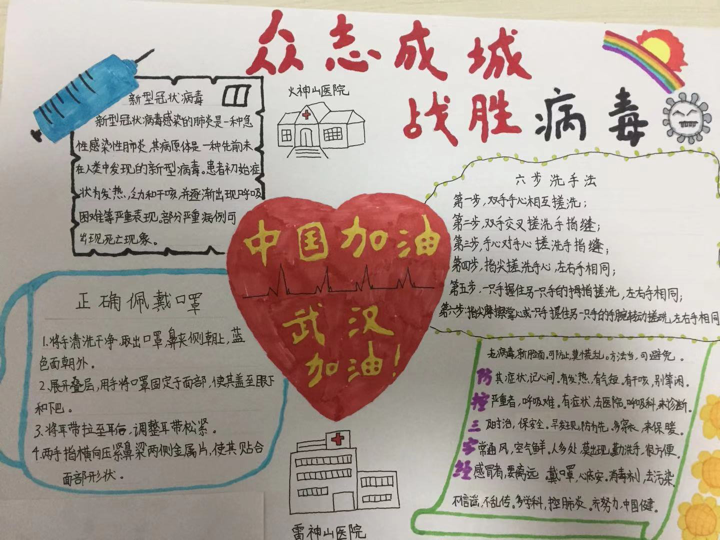 众志成城
战胜病毒
新型冠状病毒
新型冠状病毒感染的肺炎是一种急
性感染性肺炎,其病原体是一种先前未
在人类中发现的新型病毒。患者初始症
状为发热,乏力和干咳,并逐渐出现呼吸
困难等严重表现,部分严重病例可
出现死亡现象。
火神山医院
中国加油
武汉
加油!
六步洗手法
第一步,双手手心相互搓洗;
第二步,双手交叉搓洗手指缝;
第三步,手心对手心搓洗手指缝;
第四步,指尖搓洗手心,左右手相同;
第五步,一只手握住另一只手的拇指搓洗,左右手相同;
第六步,一只手握住另一只手的手腕转动搓洗,左右手相同
正确佩戴口罩
1.将手清洗干净,取出口罩,鼻夹侧朝上,蓝
色面朝外。
2.展开叠层,用手将口罩固定于面部,使其盖至眼下
和下巴。
3.将耳带拉至耳后,调整耳带松紧。
4.两手指横向压紧鼻梁两侧金属片,使其贴合
面部形状。
雷神山医院
防控三字经
可防止,莫慌乱。方法当,可避免。
其症状,记心间。有发热,有气短,有干咳,别等闲。
严重者,呼吸难。有症状,去医院,呼吸科,来诊断。
早发现,防为先,多穿衣,来保暖。
常通风,空气鲜,人多处,莫出现,勤洗手,
感冒者,要离远,戴口罩,心病安,消毒剂,去污染,
不信谣,不乱传。学科,控肺炎。齐努力,中国健。